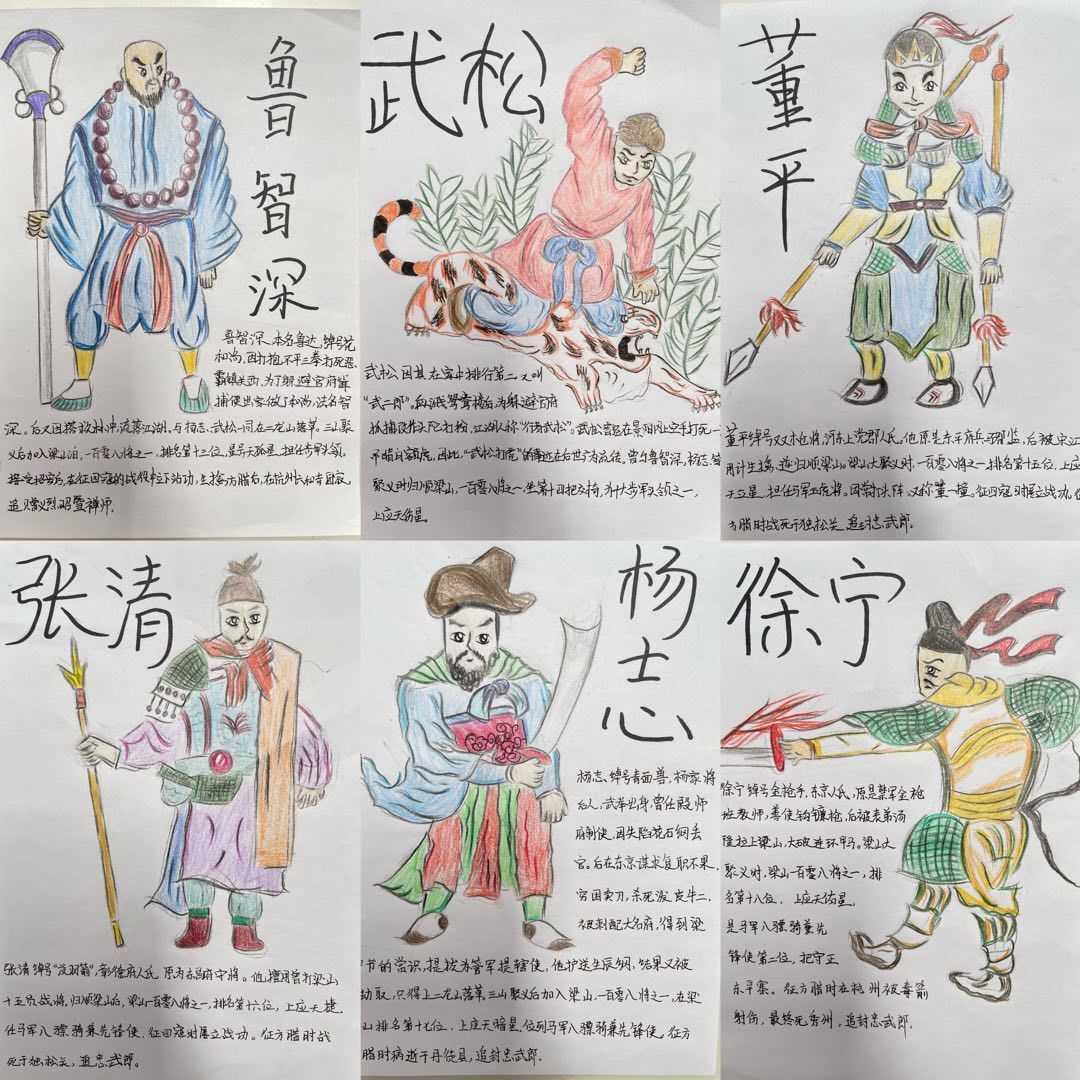 鲁智深
鲁智深,本名鲁达,绰号花
和尚,因打抱不平三拳打死恶
霸镇关西,为了躲避官府缉
捕便出家做了和尚,法名智
深。后又因搭救林冲,流落江湖,与杨志、武松一同在二龙山落草。三山聚
义后加入梁山泊,一百零八将之一,排名第十三位,星号天孤星,担任步军头领。
接受招安后,在征四寇的战役中立下功,生擒方腊后,在杭州六和寺圆寂,
追赠义烈昭暨禅师。
武松
武松因其在家中排行第二,又叫
“武二郎”。血溅鸳鸯楼后,为躲避官府
抓捕改作头陀打扮,江湖人称“行者武松”。武松曾经在景阳冈上空手打死一
只吊睛白额虎,因此,“武松打虎”的事迹在后世广为流传。曾与鲁智深,杨志,
聚义时归顺梁山,一百零八将之一,坐第十四把交椅,为十大步军头领之一,
上应天伤星。
董平
董平绰号双枪将,河东上党郡人氏。他原是东平府兵马都监,后被宋江
用计生擒,遂归顺梁山。梁山大聚义时,一百零八将之一,排名第十五位,上应
天立星,担任马军五虎将。因常打头阵,又称董一撞。征四寇时屡立战功。
方腊时战死于独松关,追封忠武郎。
张清
张清绰号“没羽箭”,彰德府人氏,原为东昌府守将。他擅用曾打梁山
十五员战将,归顺梁山后,梁山一百零八将之一,排名第十六位,上应天捷.
任马军八骠骑兼先锋使,征四寇时屡立战功。征方腊时战
死于独松关,追忠武郎。
杨志
杨志,绰号青面兽,杨家将
后人,武举出身曾任殿帅
府制使,因失陷花石纲丢
官。后在东京谋求复职不果,
穷困卖刀,杀死泼皮牛二,
被刺配大名府,得到梁
中书的赏识,提拔为管军提辖使,他护送生辰纲,结果又被
劫取,只得上二龙山落草。三山聚义后加入梁山,一百零八将之一,在梁
山排名第十七位,上应天暗星,位列马军八骠骑兼先锋使,征方
腊时病逝于丹徒县,追封忠武郎.
徐宁
徐宁绰号金枪手,东京人氏,原是禁军金枪
班教师,善使钩镰枪,后被表弟汤
隆拉上梁山,大破连环甲马。梁山大
聚义时,梁山一百零八将之一,排
名第十八位,上应天佑星,
是马军八骠骑兼先
锋使第二位,把守正
东平寨。征方腊时在杭州被毒箭
射伤,最终死秀州,追封忠武郎.